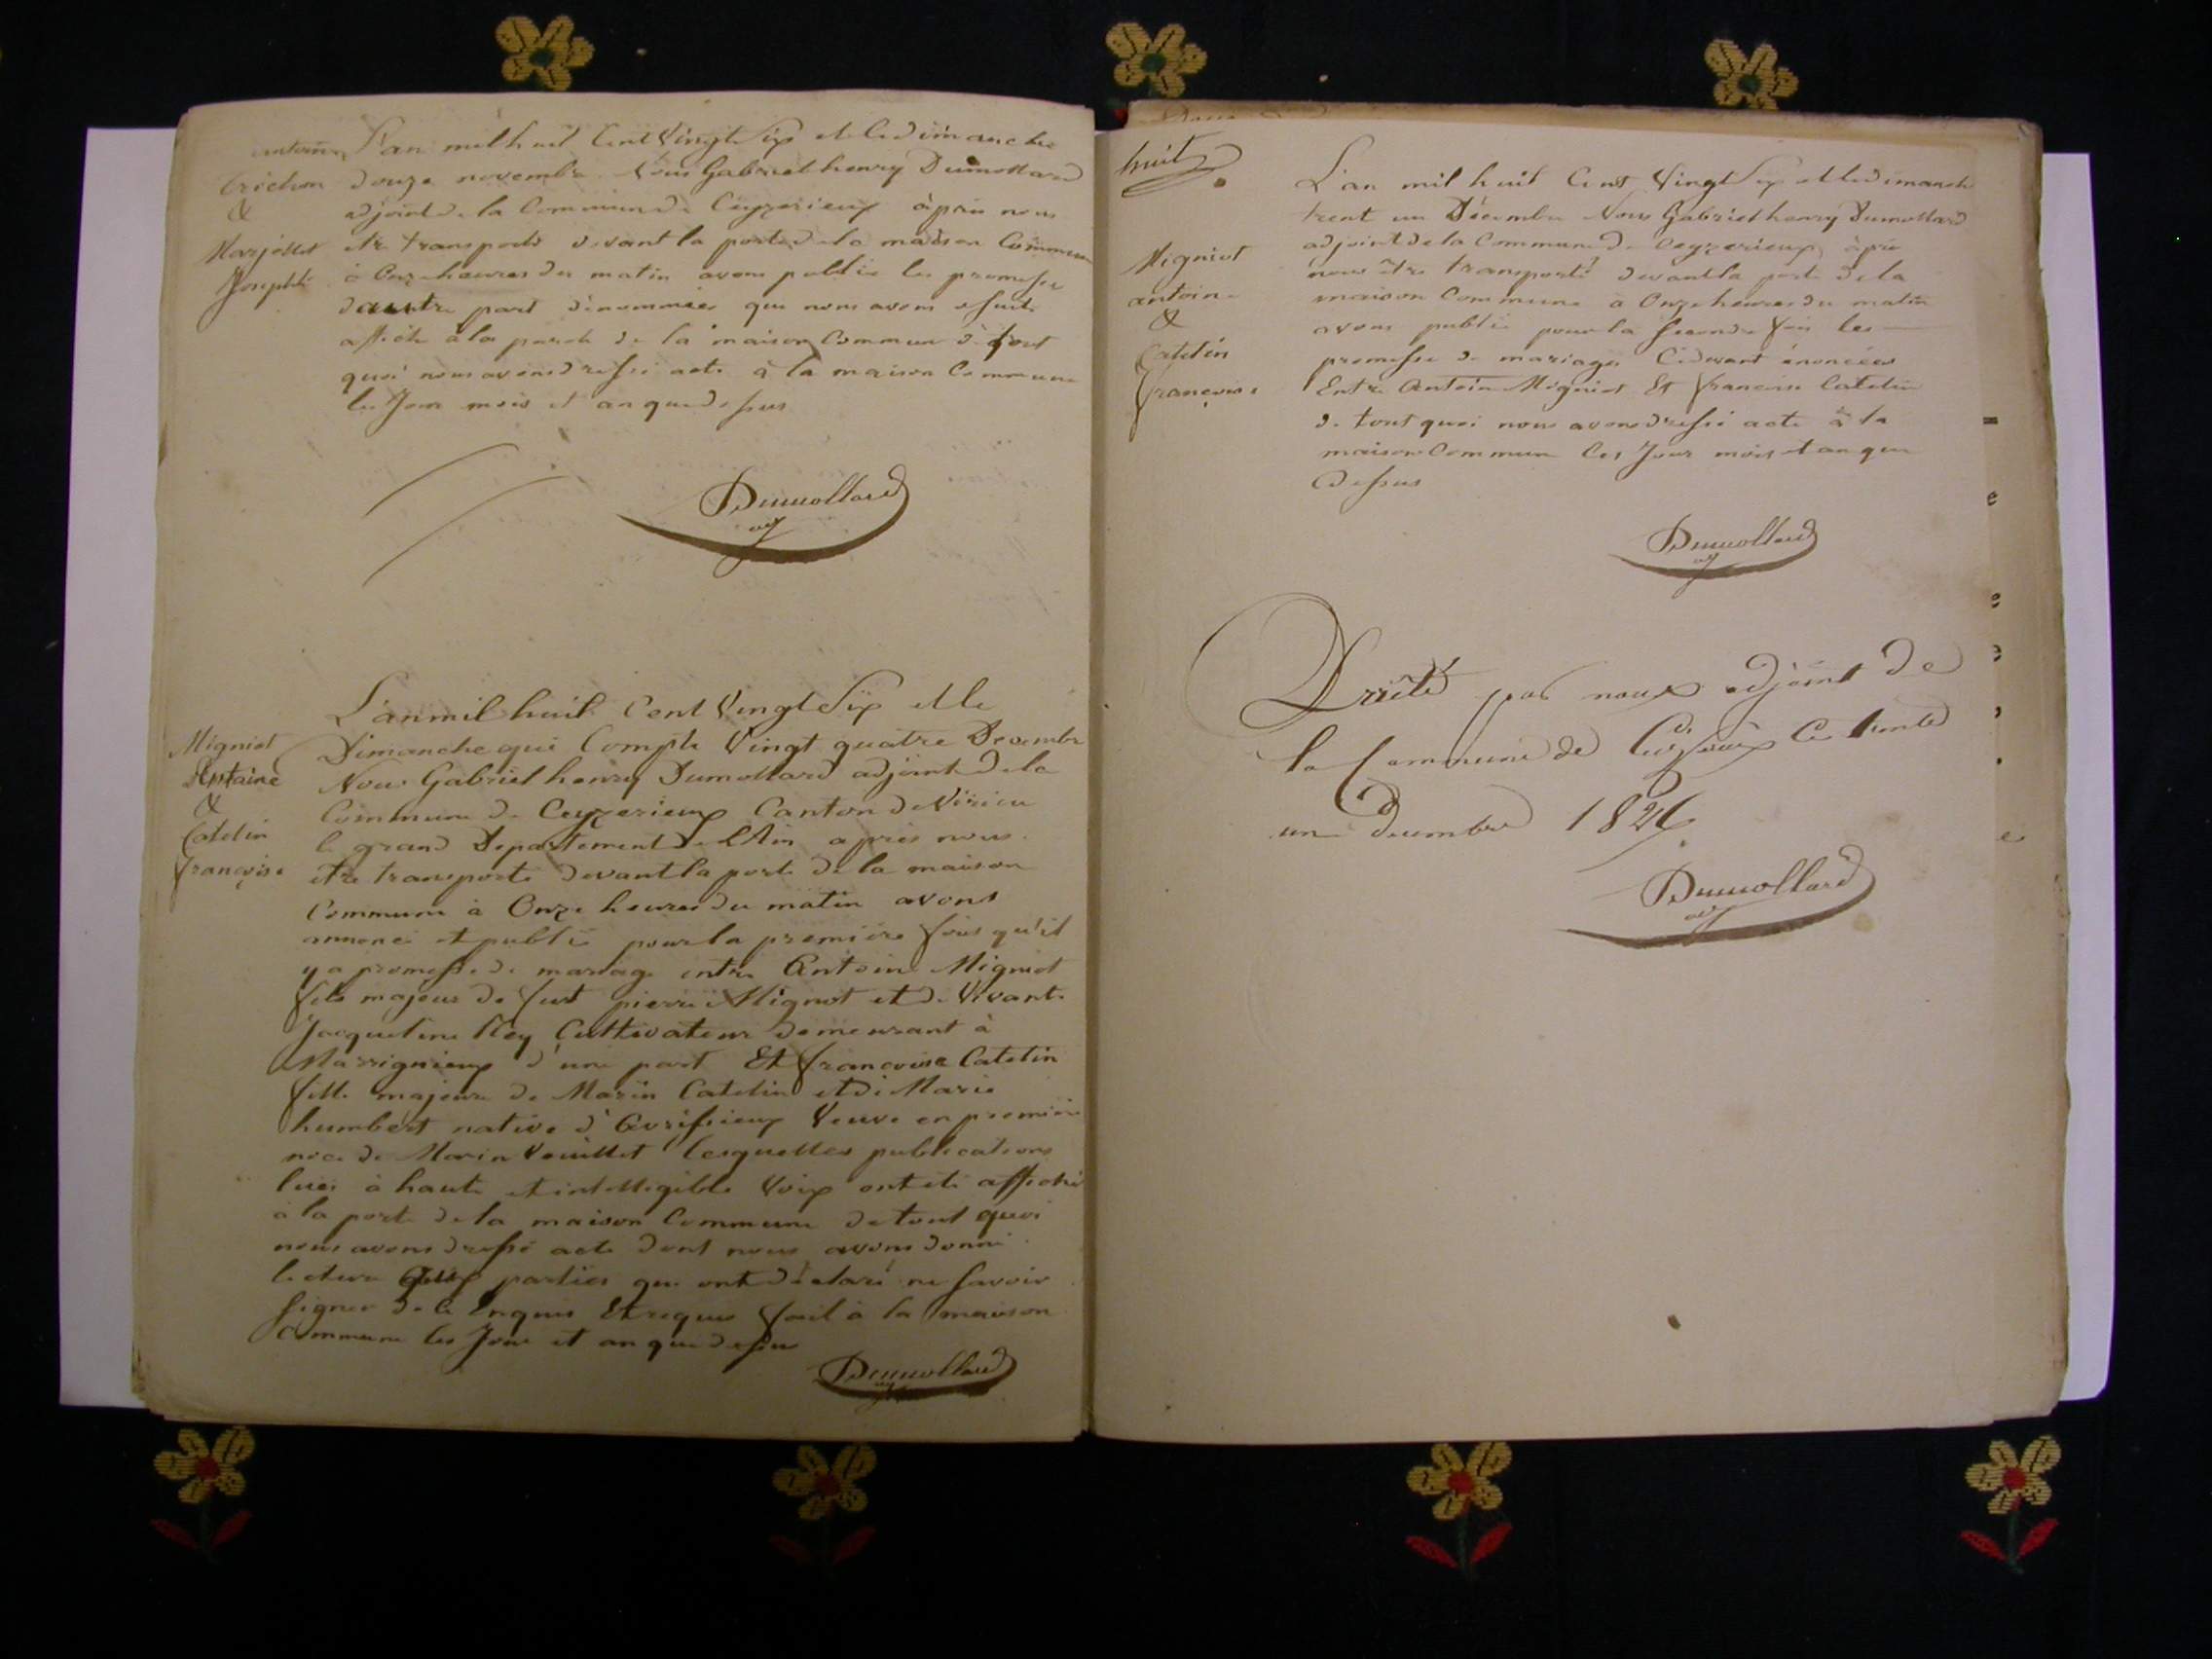 antoine
Crichon
&
Marjollet
Josephte
L'an mil huit Cent Vingt Six et le dimanche
douze novembre Nous Gabriel henry Dumollard
adjoint de la Commune de Ceyzerieux àpres nous
etre transporté devant la porte de la maison Commune
à Onze heures du matin avons publié les promesse
dautre part dénommées que nous avons ensuite
affiché à la porte de la maison Commune de tout
quoi nous avons dressé acte à la maison Commune
les Jour mois et an que dessus
Dumollard
adj
Migniot
Antoine
&
Catelin
françoise
L'an mil huit Cent Vingt Six et le
Dimanche qui Compte Vingt quatre Decembre
Nous Gabriel henry Dumollard adjoint de la
Commune de Ceyzerieux Canton de Virieu
le grand Departement de L'Ain apres nous
etre transporté devant la porte de la maison
Commune à Onze heures du matin avons
annoncé et publié pour la premiere fois qu'il
y a promesse de mariage entre Antoine Migniot
fils majeur de feut pierre Mignot et de Vivante
Jacqueline Rey Cultivateur demeurant à
Marignieux d'une part Et françoise Catelin
fille majeure de Marin Catelin et de Marie
humbert native d'Avrissieux Veuve en premiere
noce de Marin Vouillot lesquelles publications
lues à haute et intelligible Voix ont été affiché
à la porte de la maison Commune de tout quoi
nous avons dressé acte dont nous avons donné
lecture aux parties qui ont déclaré ne savoir
signer de ce Enquis Et requis fait à la maison
Commune les Jour et an que dessus
Dumollard
huit
Migniot
antoine
&
Catelin
françoise
L'an mil huit Cent Vingt Six et le dimanche
trent un Décembre Nous Gabriel henry Dumollard
adjoint de la Commune de Ceyzerieux àpres
nous être transporté devant la porte de la
maison Commune à Onze heures du matin
avons publié pour la seconde fois les
promesse de mariage Cidevant énoncées
Entre Antoine Migniot Et francoise Catelin
de tout quoi nous avons dressé acte à la
maison Commune les Jour mois et an que
dessus
Dumollard
adj
Arrêté par nous adjoint de
la Commune de Ceyzerieux Ce trente
un Decembre 1826
Dumollard
adj